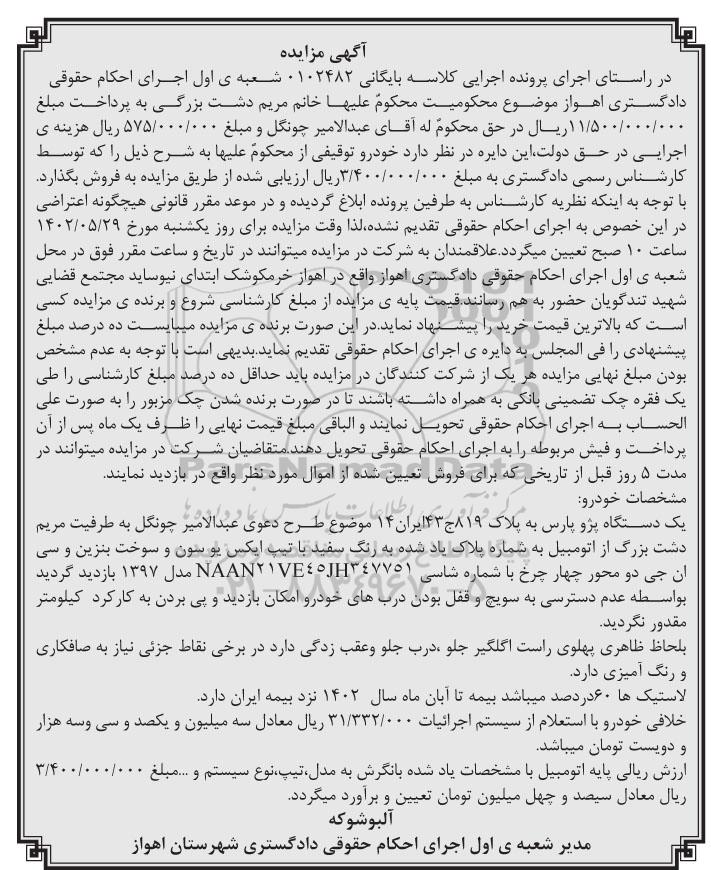 آگهی مزایده
در راستای اجرای پرونده اجرایی کلاسه بایگانی ۰۱۰۲۴۸۲ شعبه ی اول اجرای احکام حقوقی
دادگستری اهواز موضوع محکومیت محکومٌ علیها خانم مریم دشت بزرگی به پرداخت مبلغ
۱۱/۵۰۰/۰۰۰/۰۰۰ریال در حق محکومٌ له آقای عبدالامیر چونگل و مبلغ ۵۷۵/۰۰۰/۰۰۰ ریال هزینه ی
اجرایی در حق دولت،این دایره در نظر دارد خودرو توقیفی از محکومٌ علیها به شرح ذیل را که توسط
کارشناس رسمی دادگستری به مبلغ ۳/۴۰۰/۰۰۰/۰۰۰ریال ارزیابی شده از طریق مزایده به فروش بگذارد.
با توجه به اینکه نظریه کارشناس به طرفین پرونده ابلاغ گردیده و در موعد مقرر قانونی هیچگونه اعتراضی
در این خصوص به اجرای احکام حقوقی تقدیم نشده،لذا وقت مزایده برای روز یکشنبه مورخ ۱۴۰۲/۰۵/۲۹
ساعت ۱۰ صبح تعیین میگردد.علاقمندان به شرکت در مزایده میتوانند در تاریخ و ساعت مقرر فوق در محل
شعبه ی اول اجرای احکام حقوقی دادگستری اهواز واقع در اهواز خرمکوشک ابتدای نیوساید مجتمع قضایی
شهید تندگویان حضور به هم رسانند.قیمت پایه ی مزایده از مبلغ کارشناسی شروع و برنده ی مزایده کسی
است که بالاترین قیمت خرید را پیشنهاد نماید.در این صورت برنده ی مزایده میبایست ده درصد مبلغ
پیشنهادی را فی المجلس به دایره ی اجرای احکام حقوقی تقدیم نماید.بدیهی است با توجه به عدم مشخص
بودن مبلغ نهایی مزایده هر یک از شرکت کنندگان در مزایده باید حداقل ده درصد مبلغ کارشناسی را طی
یک فقره چک تضمینی بانکی به همراه داشته باشند تا در صورت برنده شدن چک مزبور را به صورت علی
الحساب به اجرای احکام حقوقی تحویل نمایند و الباقی مبلغ قیمت نهایی را ظرف یک ماه پس از آن
پرداخت و فیش مربوطه را به اجرای احکام حقوقی تحویل دهند.متقاضیان شرکت در مزایده میتوانند در
مدت ۵ روز قبل از تاریخی که برای فروش تعیین شده از اموال مورد نظر واقع در بازدید نمایند.
مشخصات خودرو:
یک دستگاه پژو پارس به پلاک ۸۱۹ج۴۳ایران۱۴ موضوع طرح دعوی عبدالامیر چونگل به طرفیت مریم
دشت بزرگ از اتومبیل به شماره پلاک یاد شده به رنگ سفید با تیپ ایکس یو سون و سوخت بنزین و سی
ان جی دو محور چهار چرخ با شماره شاسی NAAN۲۱VE۴۵JH۳۴۷۷۵۱ مدل ۱۳۹۷ بازدید گردید
بواسطه عدم دسترسی به سویچ و قفل بودن درب های خودرو امکان بازدید و پی بردن به کارکرد کیلومتر
مقدور نگردید.
بلحاظ ظاهری پهلوی راست اگلگیر جلو ،درب جلو وعقب زدگی دارد در برخی نقاط جزئی نیاز به صافکاری
و رنگ آمیزی دارد.
لاستیک ها ۶۰دردصد میباشد بیمه تا آبان ماه سال ۱۴۰۲ نزد بیمه ایران دارد.
خلافی خودرو با استعلام از سیستم اجرائیات ۳۱/۳۳۲/۰۰۰ ریال معادل سه میلیون و یکصد و سی وسه هزار
و دویست تومان میباشد.
ارزش ریالی پایه اتومبیل با مشخصات یاد شده بانگرش به مدل،تیپ،نوع سیستم و ...مبلغ ۳/۴۰۰/۰۰۰/۰۰۰
ریال معادل سیصد و چهل میلیون تومان تعیین و برآورد میگردد.
آلبوشوکه
مدیر شعبه ی اول اجرای احکام حقوقی دادگستری شهرستان اهواز
ParsNamadData